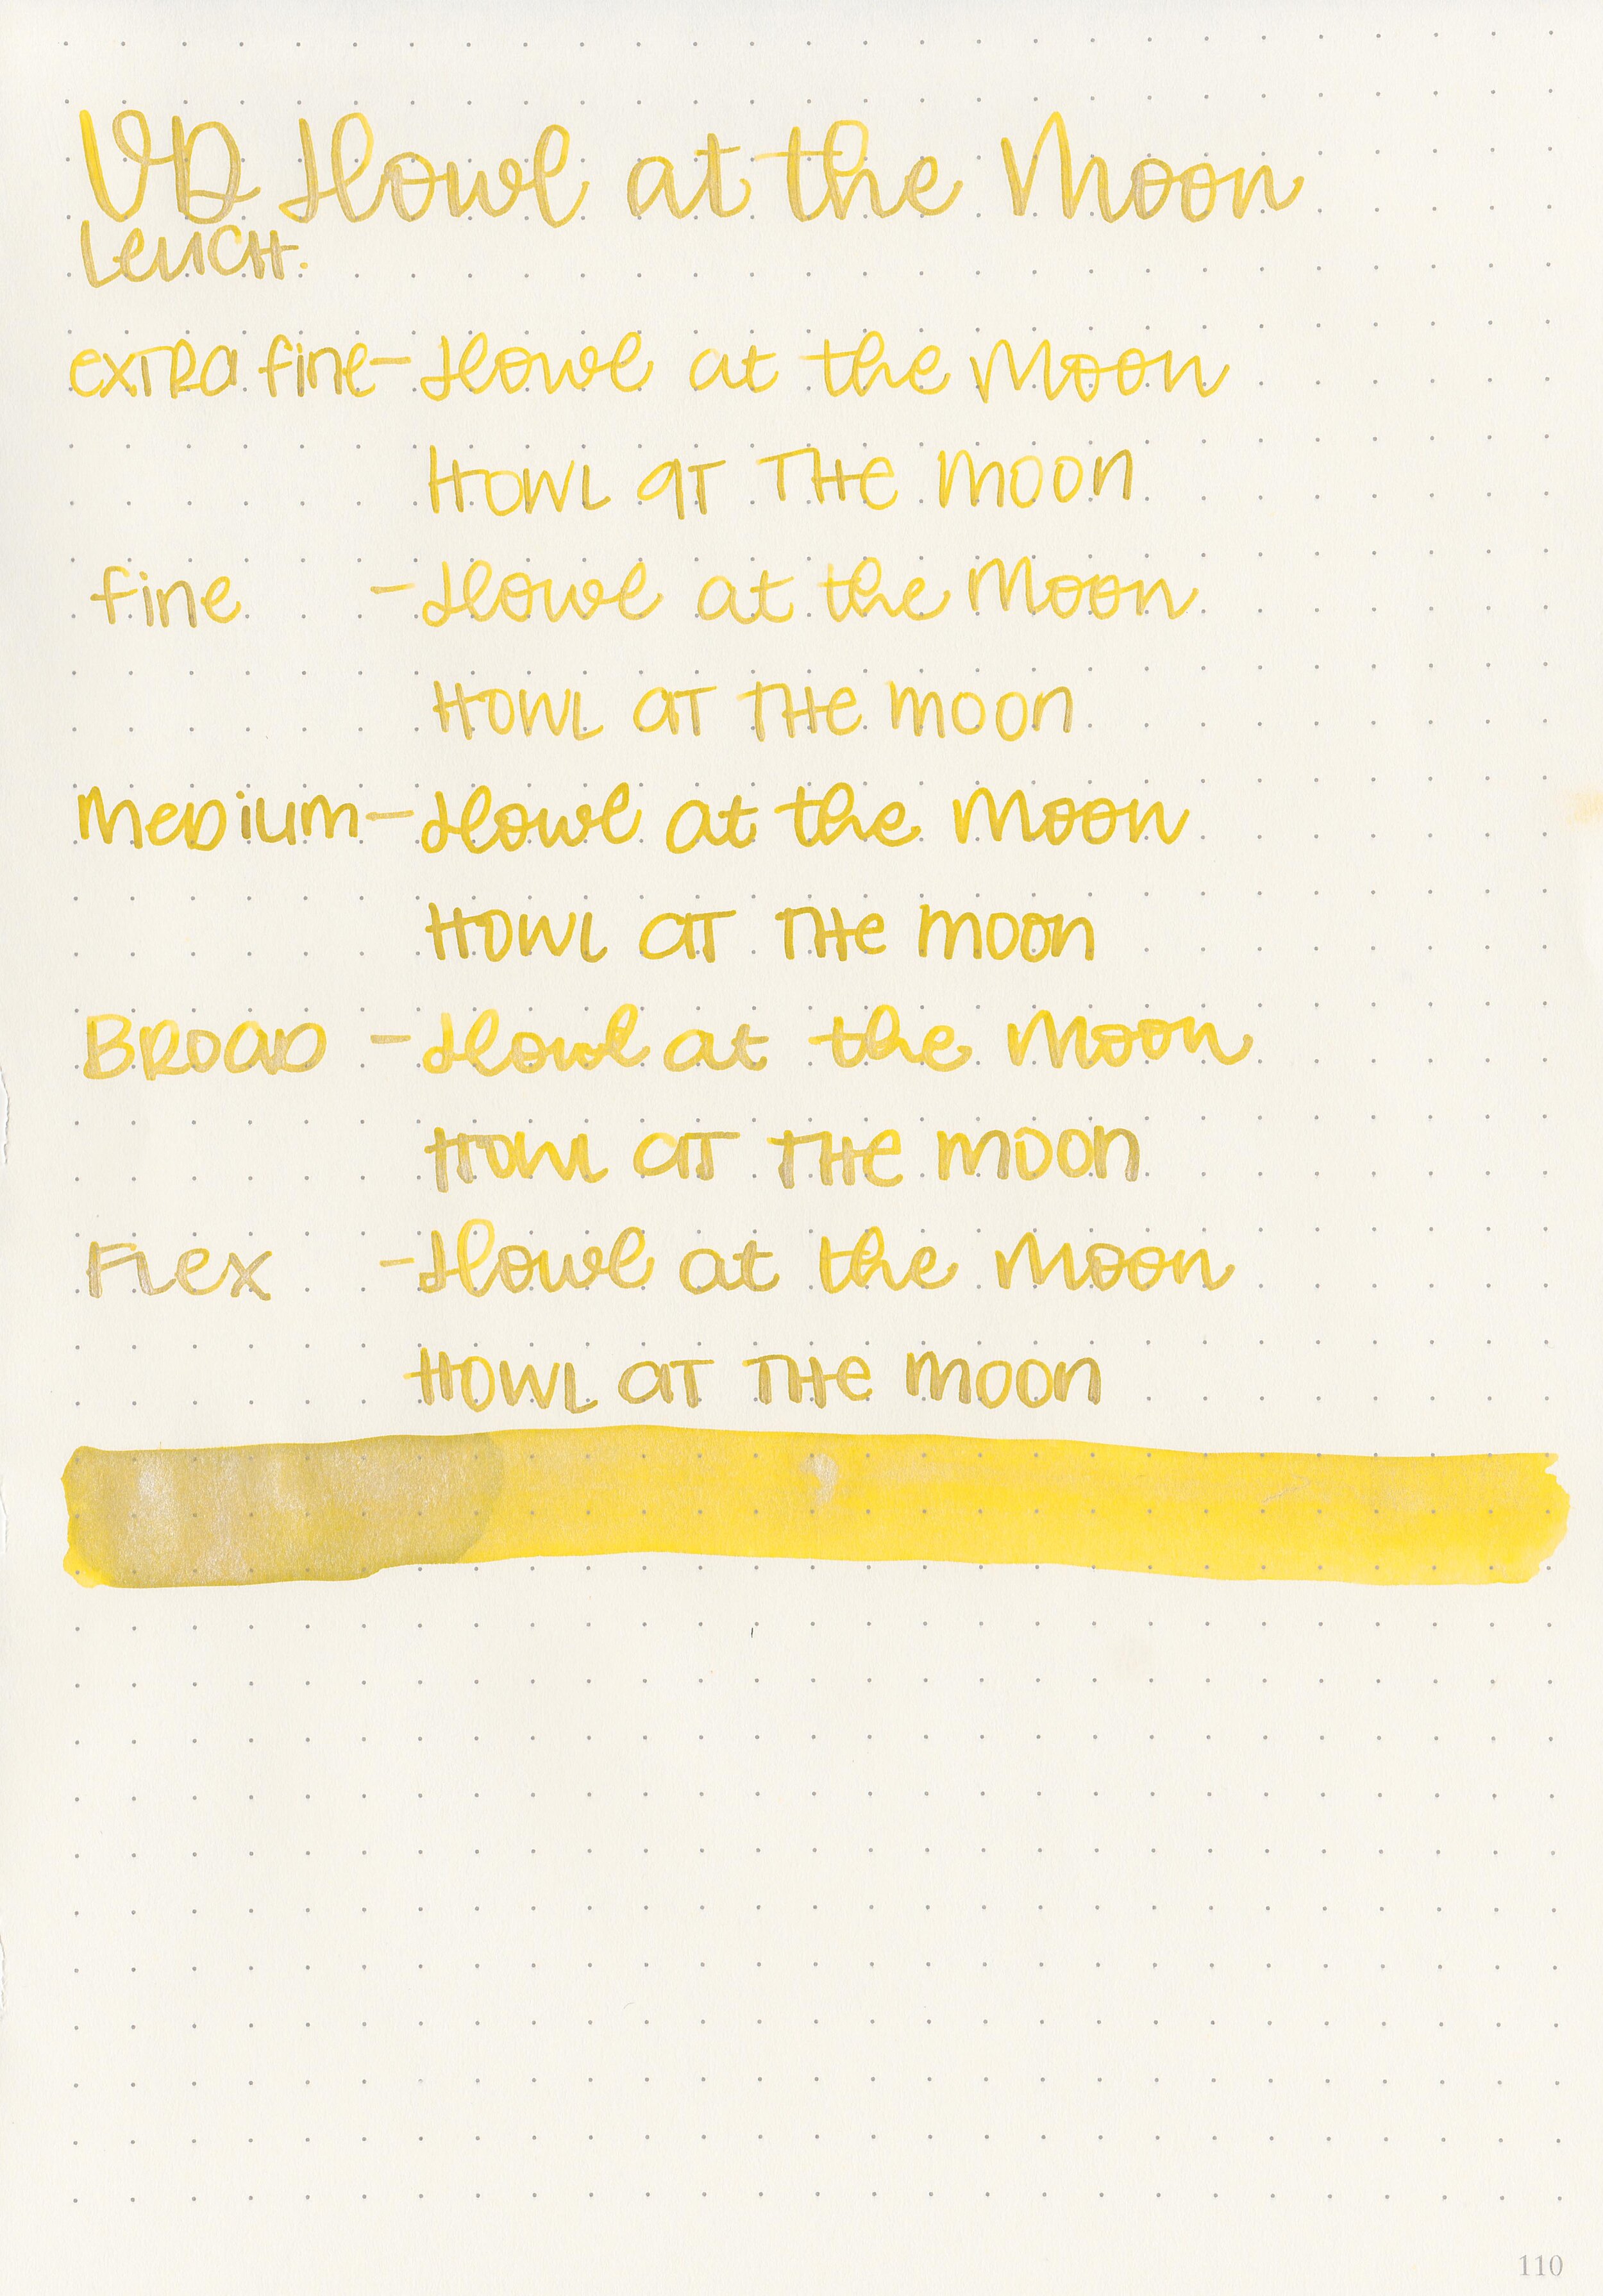 VD Howl at the Moon
Leuch.
extra fine - Howl at the Moon
Howl at the moon
fine - Howl at the Moon
Howl at the moon
Medium - Howl at the Moon
Howl at the moon
Broad - Howl at the Moon
Howl at the moon
Flex - Howl at the Moon
Howl at the moon
110